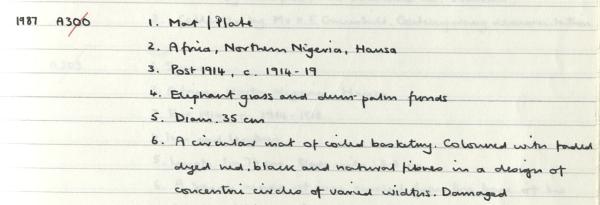 1987 A300 1. Mat / Plate
2. Africa, Northern Nigeria, Hausa
3. Post 1914, c. 1914-19
4. Elephant grass and dum-palm fronds
5. Diam. 35 cm
6. A circular mat of coiled basketry. Coloured with faded
dyed red, black and natural fibres in a design of
concentric circles of varied widths. Damaged